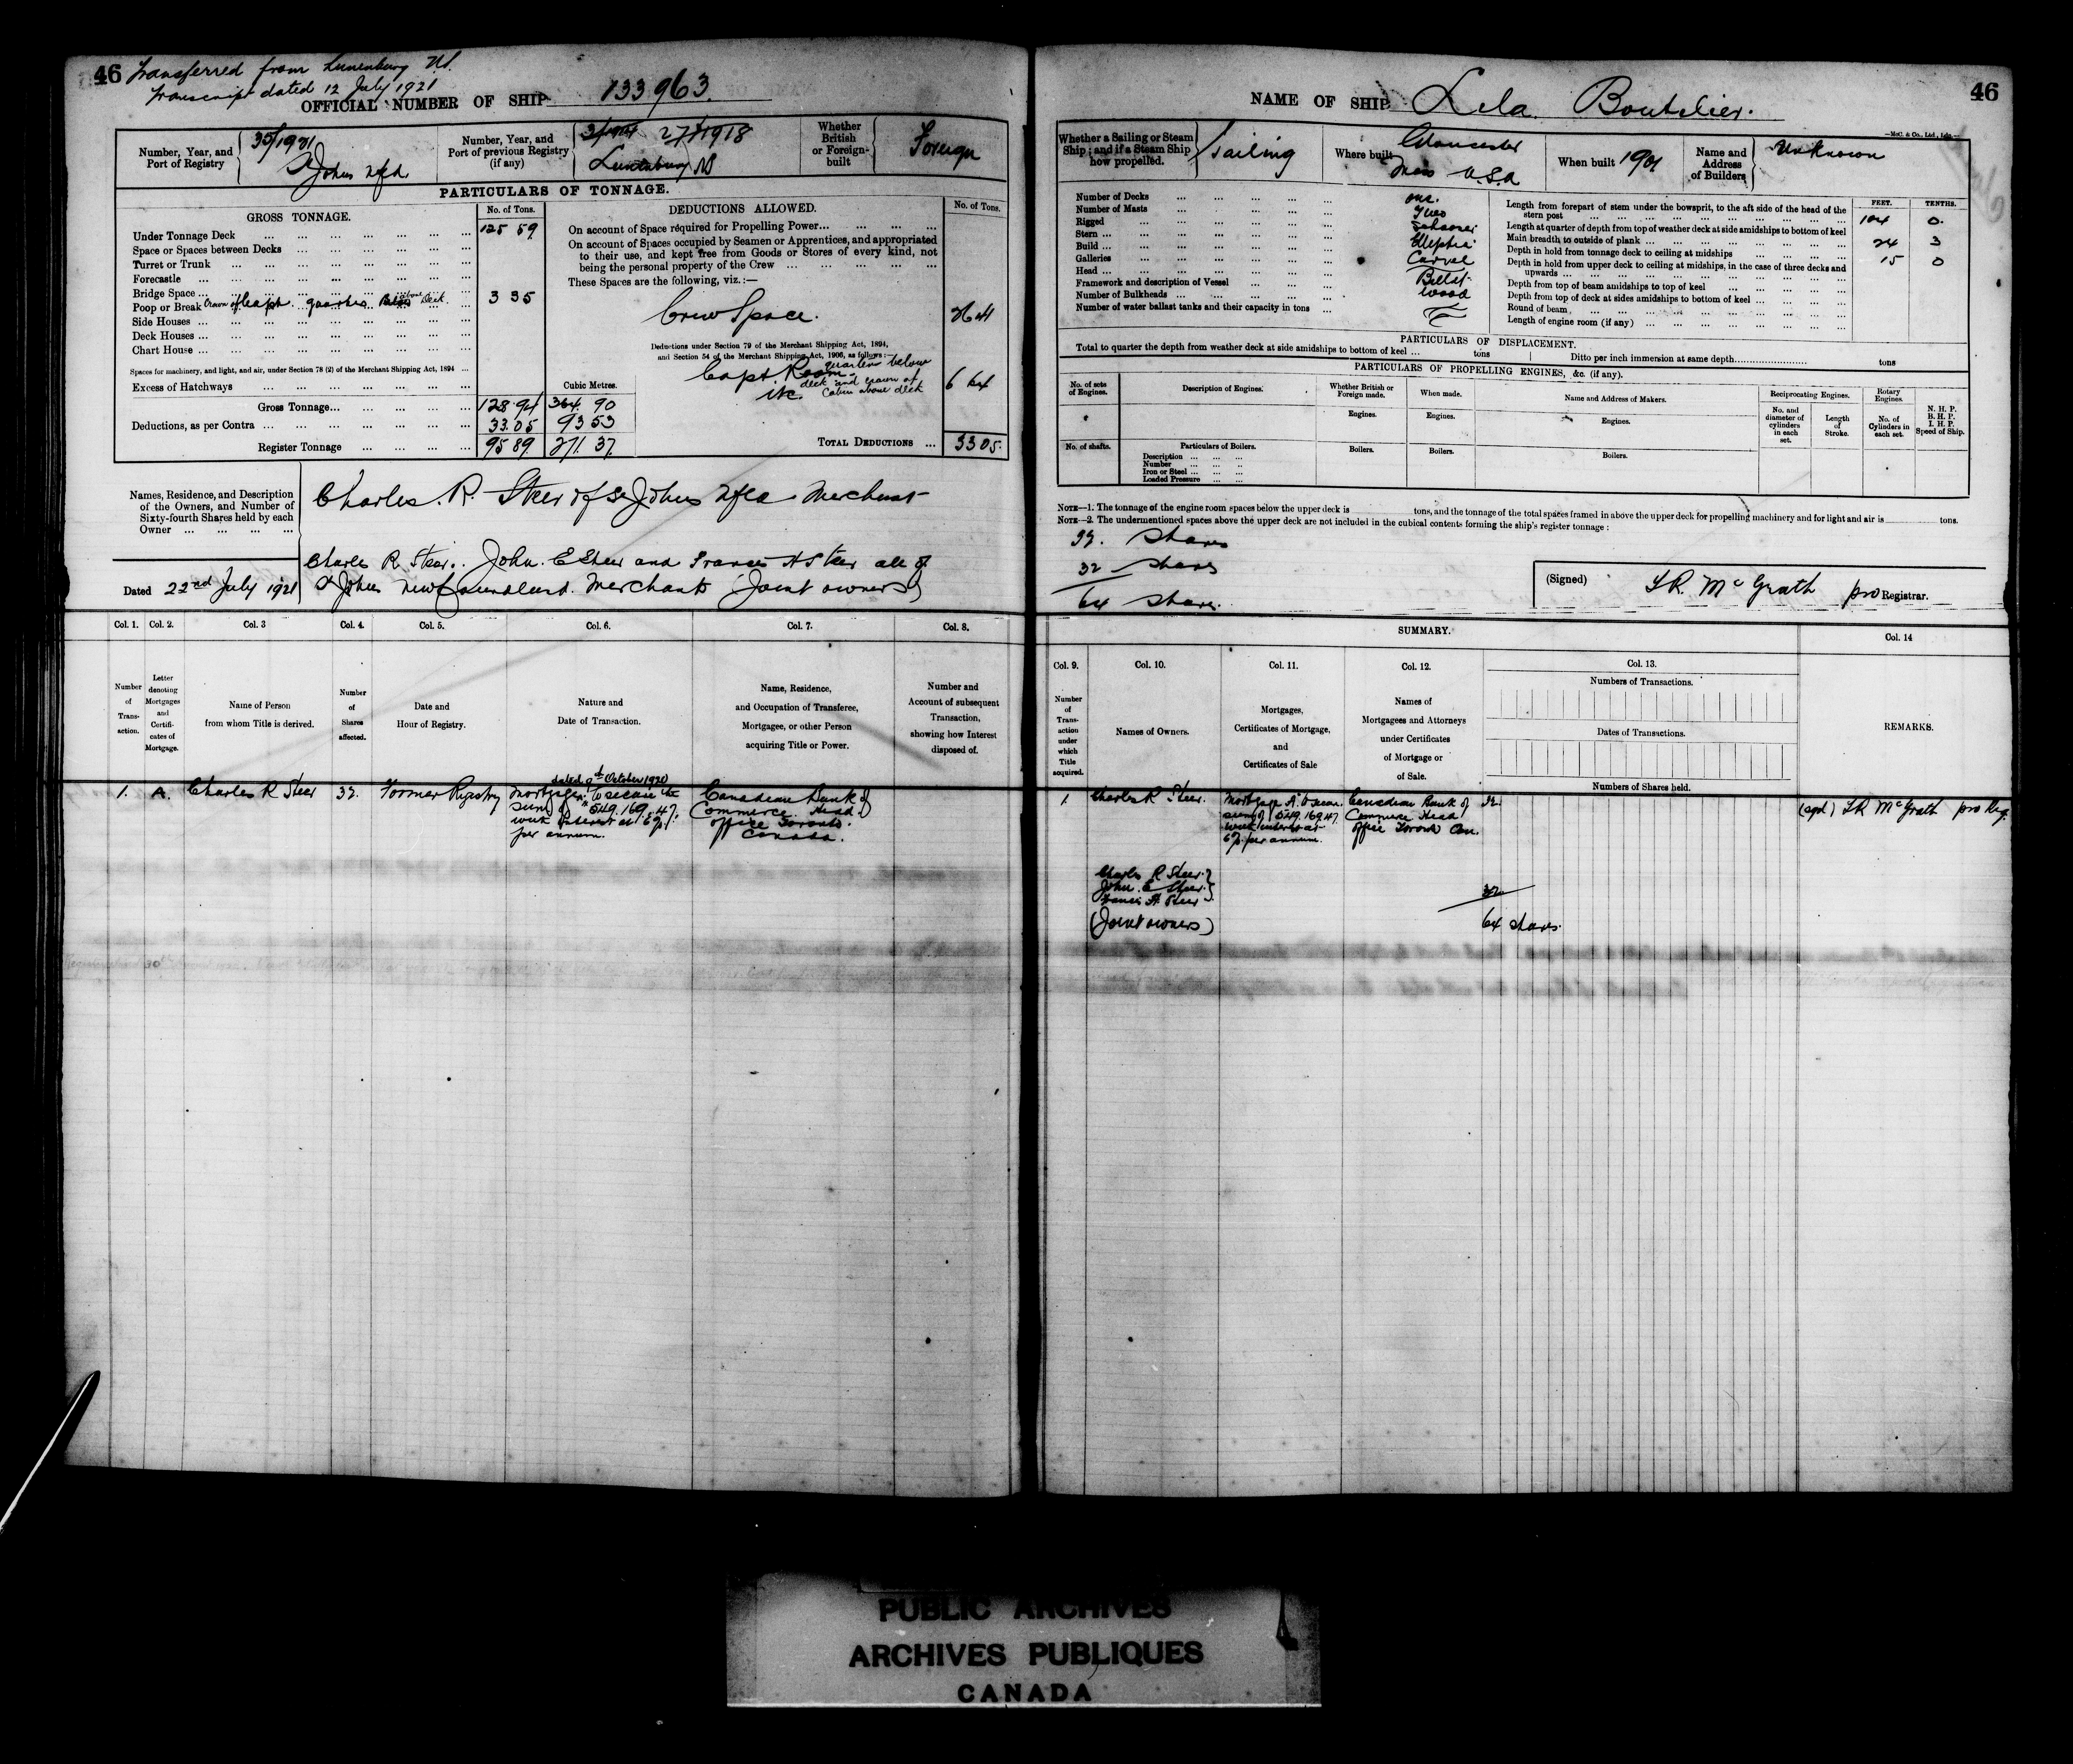 46 Transferred from Lunenburg NS.
Transcript dated 12 July 1921
OFFICIAL NUMBER OF SHIP 133963.
Number, Year, and Port of Registry
35/1921
St Johns Nfld
Number, Year, and Port of previous Registry (if any)
27/1918
Lunenburg NS
Whether British or Foreign-built
Foreign
PARTICULARS OF TONNAGE.
GROSS TONNAGE.
No. of Tons.
Under Tonnage Deck ... 125 59
Space or Spaces between Decks
Turret or Trunk
Forecastle
Bridge Space
Poop or Break Crown of Capt. quarters above Deck. 3 35
Side Houses
Deck Houses
Chart House
Spaces for machinery, and light, and air, under Section 78 (2) of the Merchant Shipping Act, 1894
Excess of Hatchways
Cubic Metres.
Gross Tonnage... 128.94 364. 90
Deductions, as per Contra ... 33.05 93 53
Register Tonnage ... 95 89 271. 37
DEDUCTIONS ALLOWED.
No. of Tons.
On account of Space required for Propelling Power...
On account of Spaces occupied by Seamen or Apprentices, and appropriated
to their use, and kept free from Goods or Stores of every kind, not
being the personal property of the Crew
These Spaces are the following, viz.:—
Crew Space. 26 41
Deductions under Section 79 of the Merchant Shipping Act, 1894,
and Section 54 of the Merchant Shipping Act, 1906, as follows:—
Capt. Room quarters below
deck and crown of
etc. Cabin above deck 6 64
TOTAL DEDUCTIONS ... 33 05.
Names, Residence, and Description
of the Owners, and Number of
Sixty-fourth Shares held by each
Owner
Charles. R. Steer of St Johns Nfld Merchant
Charles R Steer. John. E Steer and Francis H Steer all of
Dated 22nd July 1921 St Johns Newfoundland. Merchants (Joint owners)
Col. 1. Col. 2. Col. 3 Col. 4. Col. 5. Col. 6. Col. 7. Col. 8.
Number of Transaction.
Letter denoting Mortgages and Certificates of Mortgage.
Name of Person from whom Title is derived.
Number of Shares affected.
Date and Hour of Registry.
Nature and Date of Transaction.
Name, Residence, and Occupation of Transferee, Mortgagee, or other Person acquiring Title or Power.
Number and Account of subsequent Transaction, showing how Interest disposed of.
1. A. Charles R Steer 32. Former Registry
dated October 1920
Mortgage to secure the
sum of $549.169.47.
with Interest at 6%
per annum.
Canadian Bank of
Commerce. Head
office Toronto.
Canada.
46
NAME OF SHIP Lila Boutilier.
—McC. & Co., Ltd., Ldn.—
Whether a Sailing or Steam Ship; and if a Steam Ship how propelled.
Sailing
Where built
Gloucester
Mass U.S.A
When built 1901
Name and Address of Builders
Unknown
Number of Decks ... one.
Number of Masts ... Two
Rigged ... Schooner
Stern ... Elliptic
Build ... Carvel
Galleries
Head ... Billet
Framework and description of Vessel ... Wood
Number of Bulkheads
Number of water ballast tanks and their capacity in tons
FEET. TENTHS.
Length from forepart of stem under the bowsprit, to the aft side of the head of the
stern post ... 104 0.
Length at quarter of depth from top of weather deck at side amidships to bottom of keel
Main breadth to outside of plank ... 24 3
Depth in hold from tonnage deck to ceiling at midships
Depth in hold from upper deck to ceiling at midships, in the case of three decks and
upwards
15 0
Depth from top of beam amidships to top of keel
Depth from top of deck at sides amidships to bottom of keel
Round of beam
Length of engine room (if any)
PARTICULARS OF DISPLACEMENT.
Total to quarter the depth from weather deck at side amidships to bottom of keel ... tons Ditto per inch immersion at same depth tons
PARTICULARS OF PROPELLING ENGINES, &c. (if any).
No. of sets of Engines.
Description of Engines.
Whether British or Foreign made.
When made.
Name and Address of Makers.
Reciprocating Engines.
Rotary Engines.
N. H. P.
B. H. P.
I. H. P.
Speed of Ship.
Engines. Engines. Engines.
No. and diameter of cylinders in each set.
Length of Stroke.
No. of Cylinders in each set.
No. of shafts.
Particulars of Boilers.
Description
Number
Iron or Steel
Loaded Pressure
Boilers. Boilers. Boilers.
NOTE—1. The tonnage of the engine room spaces below the upper deck is tons, and the tonnage of the total spaces framed in above the upper deck for propelling machinery and for light and air is tons.
NOTE—2. The undermentioned spaces above the upper deck are not included in the cubical contents forming the ship's register tonnage:
32. Shares
32 Shares
64 Shares.
(Signed) L R. McGrath pro Registrar.
SUMMARY.
Col. 9. Col. 10. Col. 11. Col. 12. Col. 13. Col. 14
Number of Transaction under which Title acquired.
Names of Owners.
Mortgages, Certificates of Mortgage, and Certificates of Sale
Names of Mortgagees and Attorneys under Certificates of Mortgage or of Sale.
Numbers of Transactions.
Dates of Transactions.
Numbers of Shares held.
REMARKS.
1. Charles R Steer.
Mortgage A. to secure
sum of $549.169.47.
with interest at
6% per annum.
Canadian Bank of
Commerce Head
office Toronto Can.
32.
(sgd) L R McGrath pro Reg.
Charles R Steer
John. E Steer
Francis H Steer
(Joint owners)
32
64 shares.
PUBLIC ARCHIVES
ARCHIVES PUBLIQUES
CANADA